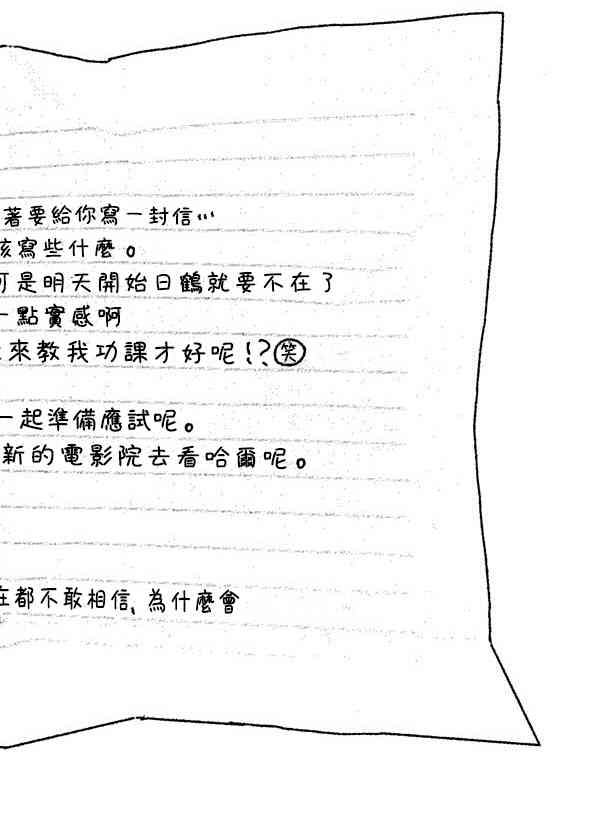 著要給你寫一封信…
該寫些什麼。
可是明天開始日鶴就要不在了
一點實感啊
來教我功課才好呢!?㊟笑
一起準備應試呢。
新的電影院去看哈爾呢。
在都不敢相信、為什麼會